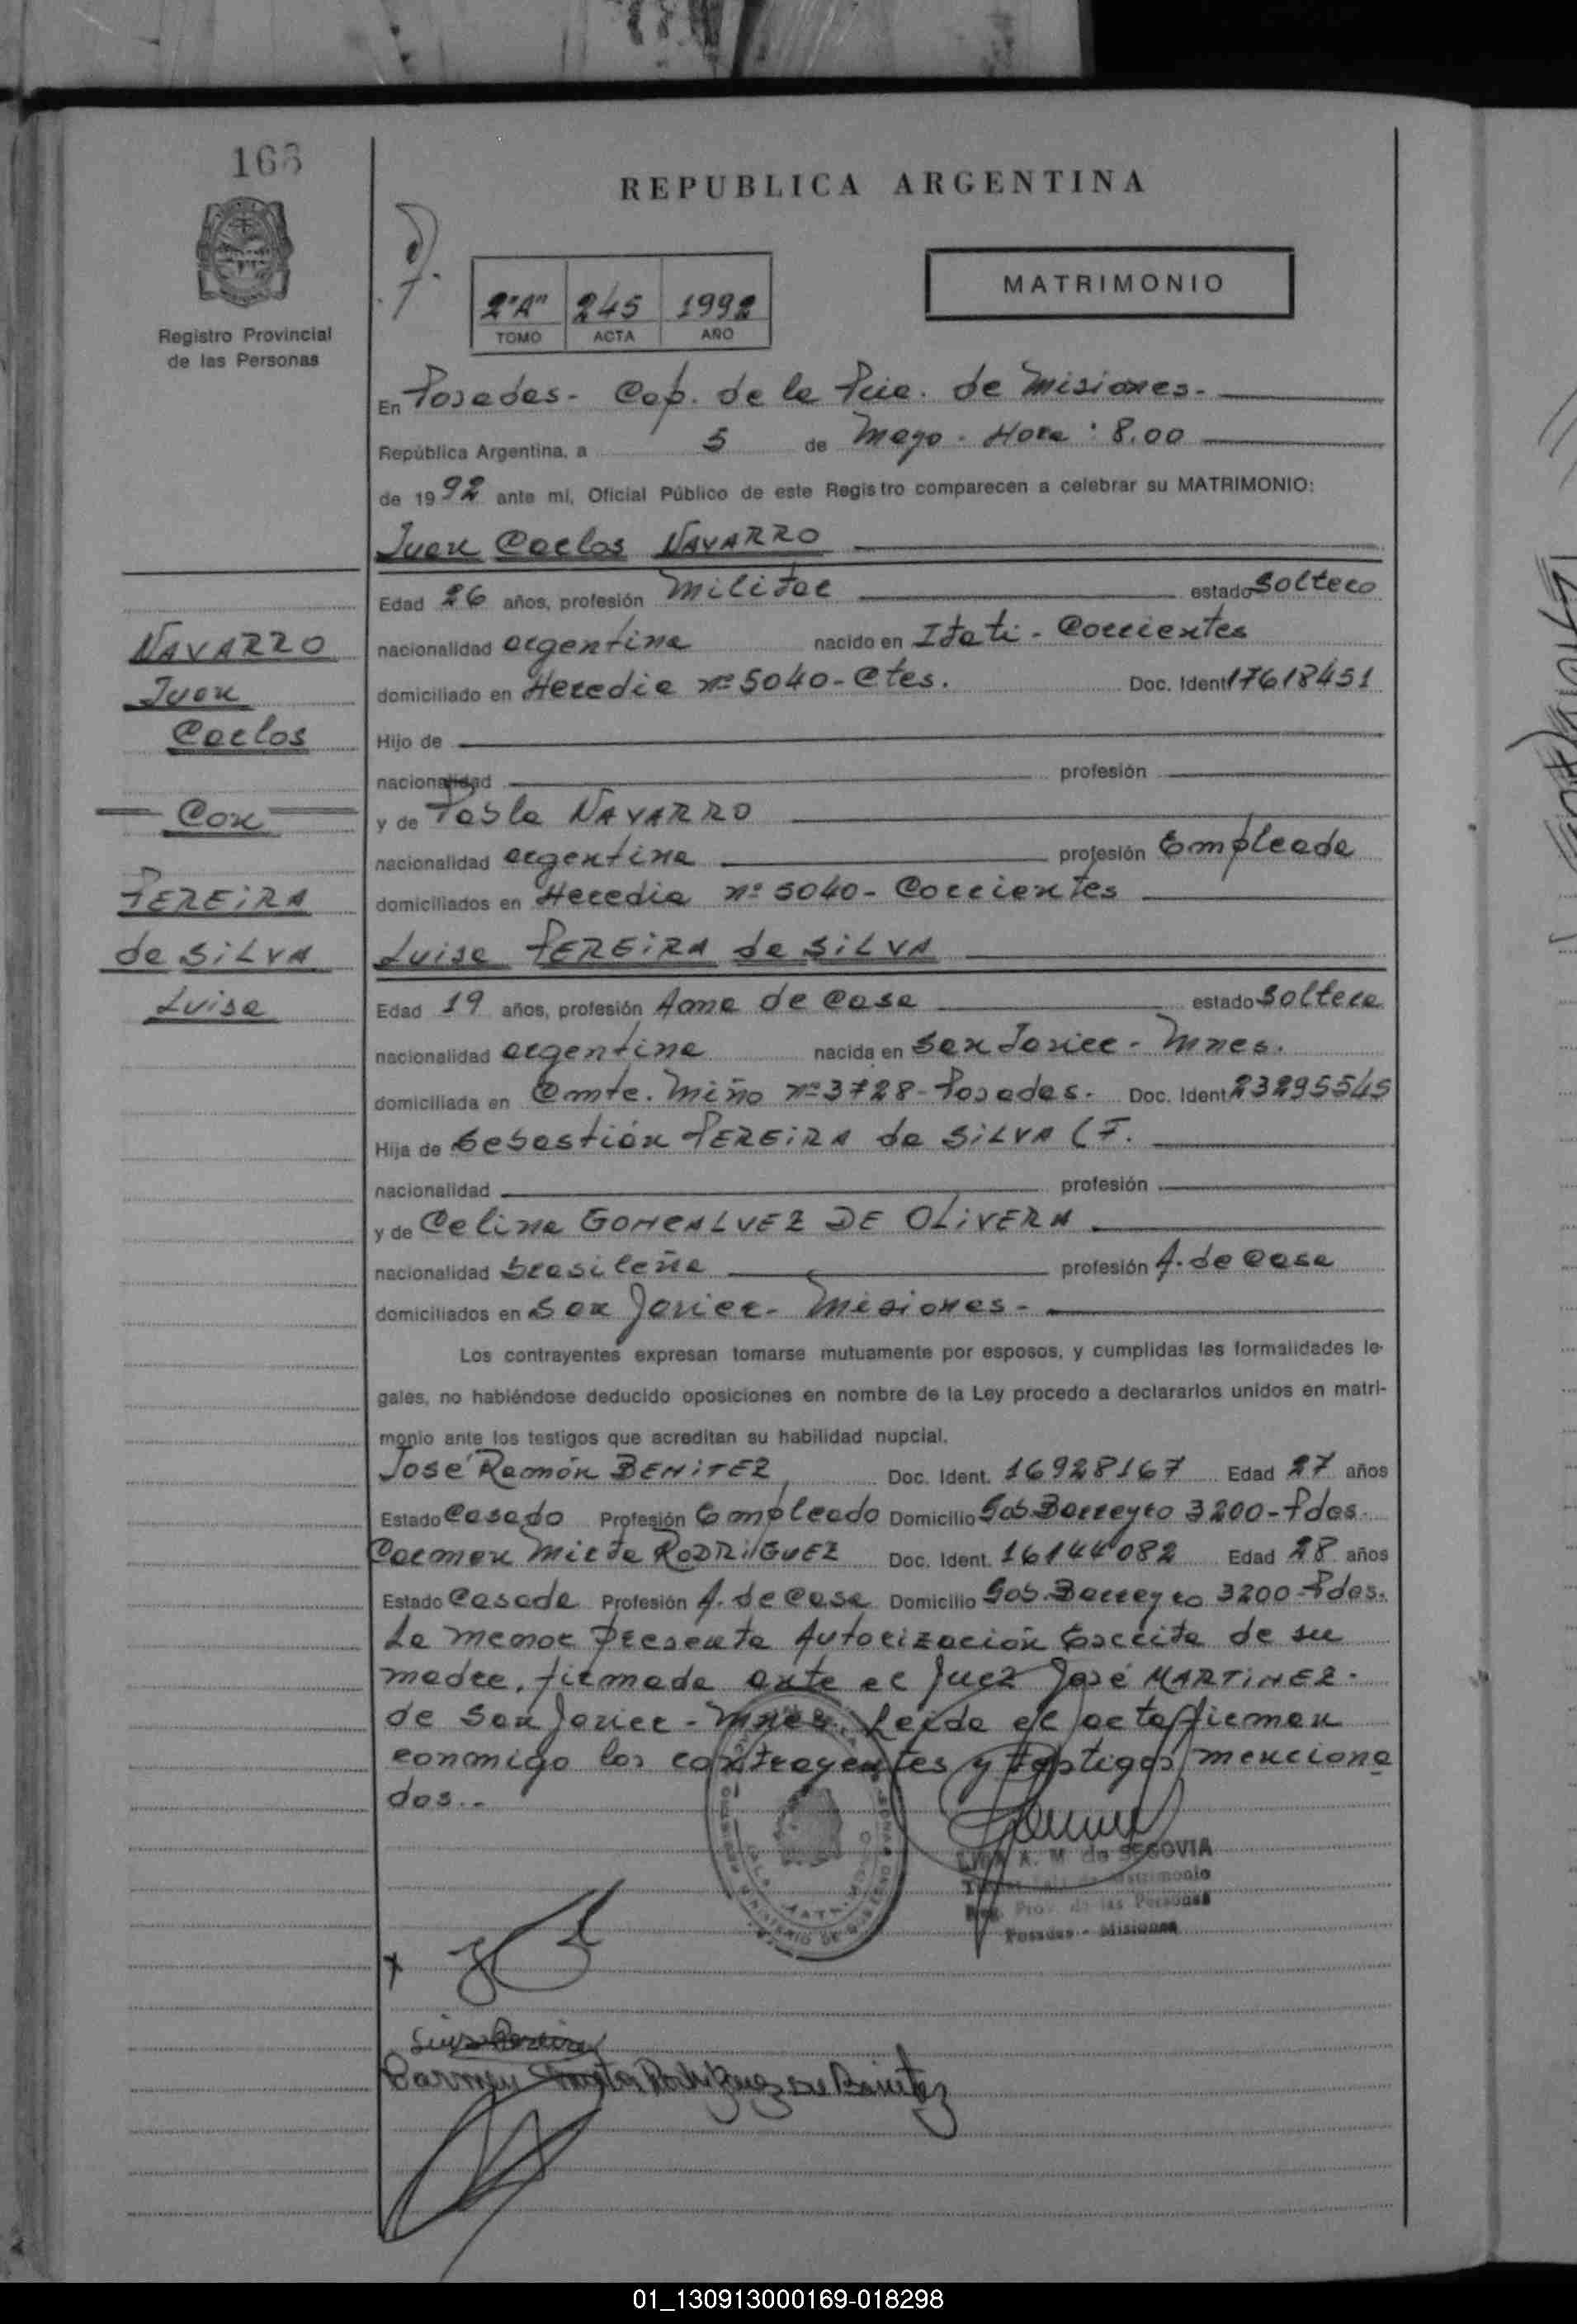 166
REPUBLICA ARGENTINA
MATRIMONIO
2"A" 245 1992
TOMO ACTA AÑO
Registro Provincial
de las Personas
En Posadas - Cap. de la Pcia. de Misiones -
República Argentina, a 5 de Mayo - Hora : 8.00
de 1992 ante mí, Oficial Público de este Registro comparecen a celebrar su MATRIMONIO:
Juan Carlos NAVARRO
Edad 26 años, profesión Militar estado Soltero
nacionalidad argentina nacido en Itati - Corrientes
domiciliado en Heredia nº 5040 - Ctes. Doc. Ident 17618451
Hijo de
nacionalidad profesión
y de Pabla NAVARRO
nacionalidad argentina profesión Empleada
domiciliados en Heredia nº 5040 - Corrientes
NAVARRO
Juan
Carlos
Con
PEREIRA
de SILVA
Luisa
Luisa PEREIRA de SILVA
Edad 19 años, profesión Ama de Casa estado Soltera
nacionalidad argentina nacida en San Javier - Mnes.
domiciliada en Cmte. Miño nº 3728 - Posadas - Doc. Ident 23295545
Hija de Sebastián PEREIRA de SILVA (F.
nacionalidad profesión
y de Celina GONCALVEZ DE OLIVERA
nacionalidad brasileña profesión A. de Casa
domiciliados en San Javier - Misiones -
Los contrayentes expresan tomarse mutuamente por esposos, y cumplidas las formalidades le-
gales, no habiéndose deducido oposiciones en nombre de la Ley procedo a declararlos unidos en matri-
monio ante los testigos que acreditan su habilidad nupcial.
José Ramón BENITEZ Doc. Ident. 16928167 Edad 27 años
Estado Casado Profesión Empleado Domicilio Gob. Barreyro 3200 - Pdas.
Carmen Mirta RODRIGUEZ Doc. Ident. 16144082 Edad 28 años
Estado Casada Profesión A. de Casa Domicilio Gob. Barreyro 3200 - Pdas.
La menor presenta Autorización Escrita de su
madre, firmada ante el Juez José MARTINEZ -
de San Javier - Mnes. Leída el acta firman
conmigo los contrayentes y testigos menciona
dos.-
A. M. de SEGOVIA
Matrimonio
Reg. Prov. de las Personas
Posadas - Misiones
Luisa Pereira
Carmen Mirta Rodriguez de Benitez
01_130913000169-018298